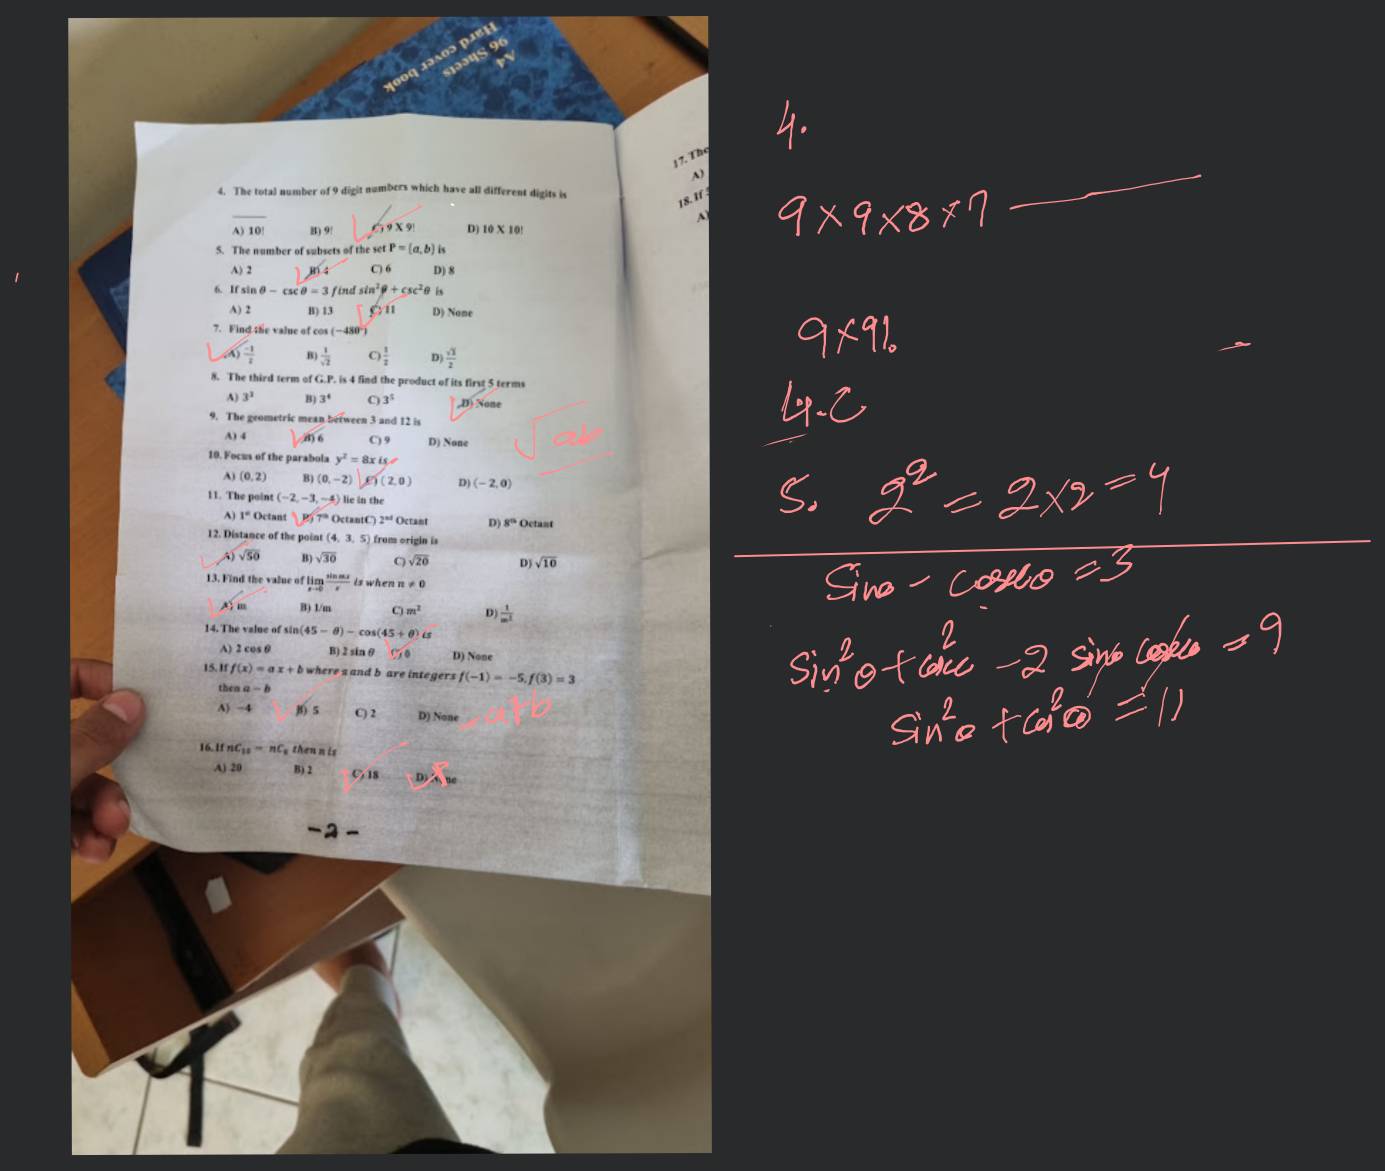 A4
96 Sheets
Hard cover book
4. The total number of 9 digit numbers which have all different digits is
A) 10! B) 9! C) 9 X 9! D) 10 X 10!
5. The number of subsets of the set P = {a, b} is
A) 2 B) 4 C) 6 D) 8
6. If sin θ − csc θ = 3 find sin²θ + csc²θ is
A) 2 B) 13 C) 11 D) None
7. Find the value of cos (−480°)
A) −1/2 B) 1/√2 C) 1/2 D) √3/2
8. The third term of G.P. is 4 find the product of its first 5 terms
A) 3³ B) 3⁴ C) 3⁵ D) None
9. The geometric mean between 3 and 12 is
A) 4 B) 6 C) 9 D) None
√ab
10. Focus of the parabola y² = 8x is
A) (0, 2) B) (0, −2) C) (2, 0) D) (− 2, 0)
11. The point (−2, −3, −4) lie in the
A) 1st Octant B) 7th Octant C) 2nd Octant D) 8th Octant
12. Distance of the point (4, 3, 5) from origin is
A) √50 B) √30 C) √20 D) √10
13. Find the value of lim x→0 sin mx/x is when n ≠ 0
A) m B) 1/m C) m² D) 1/m²
14. The value of sin(45 − θ) − cos(45 + θ) is
A) 2 cos θ B) 2 sin θ C) 0 D) None
15. If f(x) = a x + b where a and b are integers f(−1) = −5, f(3) = 3
then a − b
A) −4 B) 5 C) 2 D) None
-a+b
16. If nC₁₀ = nC₈ then n is
A) 20 B) 2 C) 18 D) None
-2-
17. The
A)
18. If
A)
4.
9×9×8×7
9×9!
4.C
5. 2² = 2×2 = 4
Sinθ - cosecθ = 3
Sin²θ + cosec² - 2 sinθ cosecθ = 9
Sin²θ + cos²θ = 11